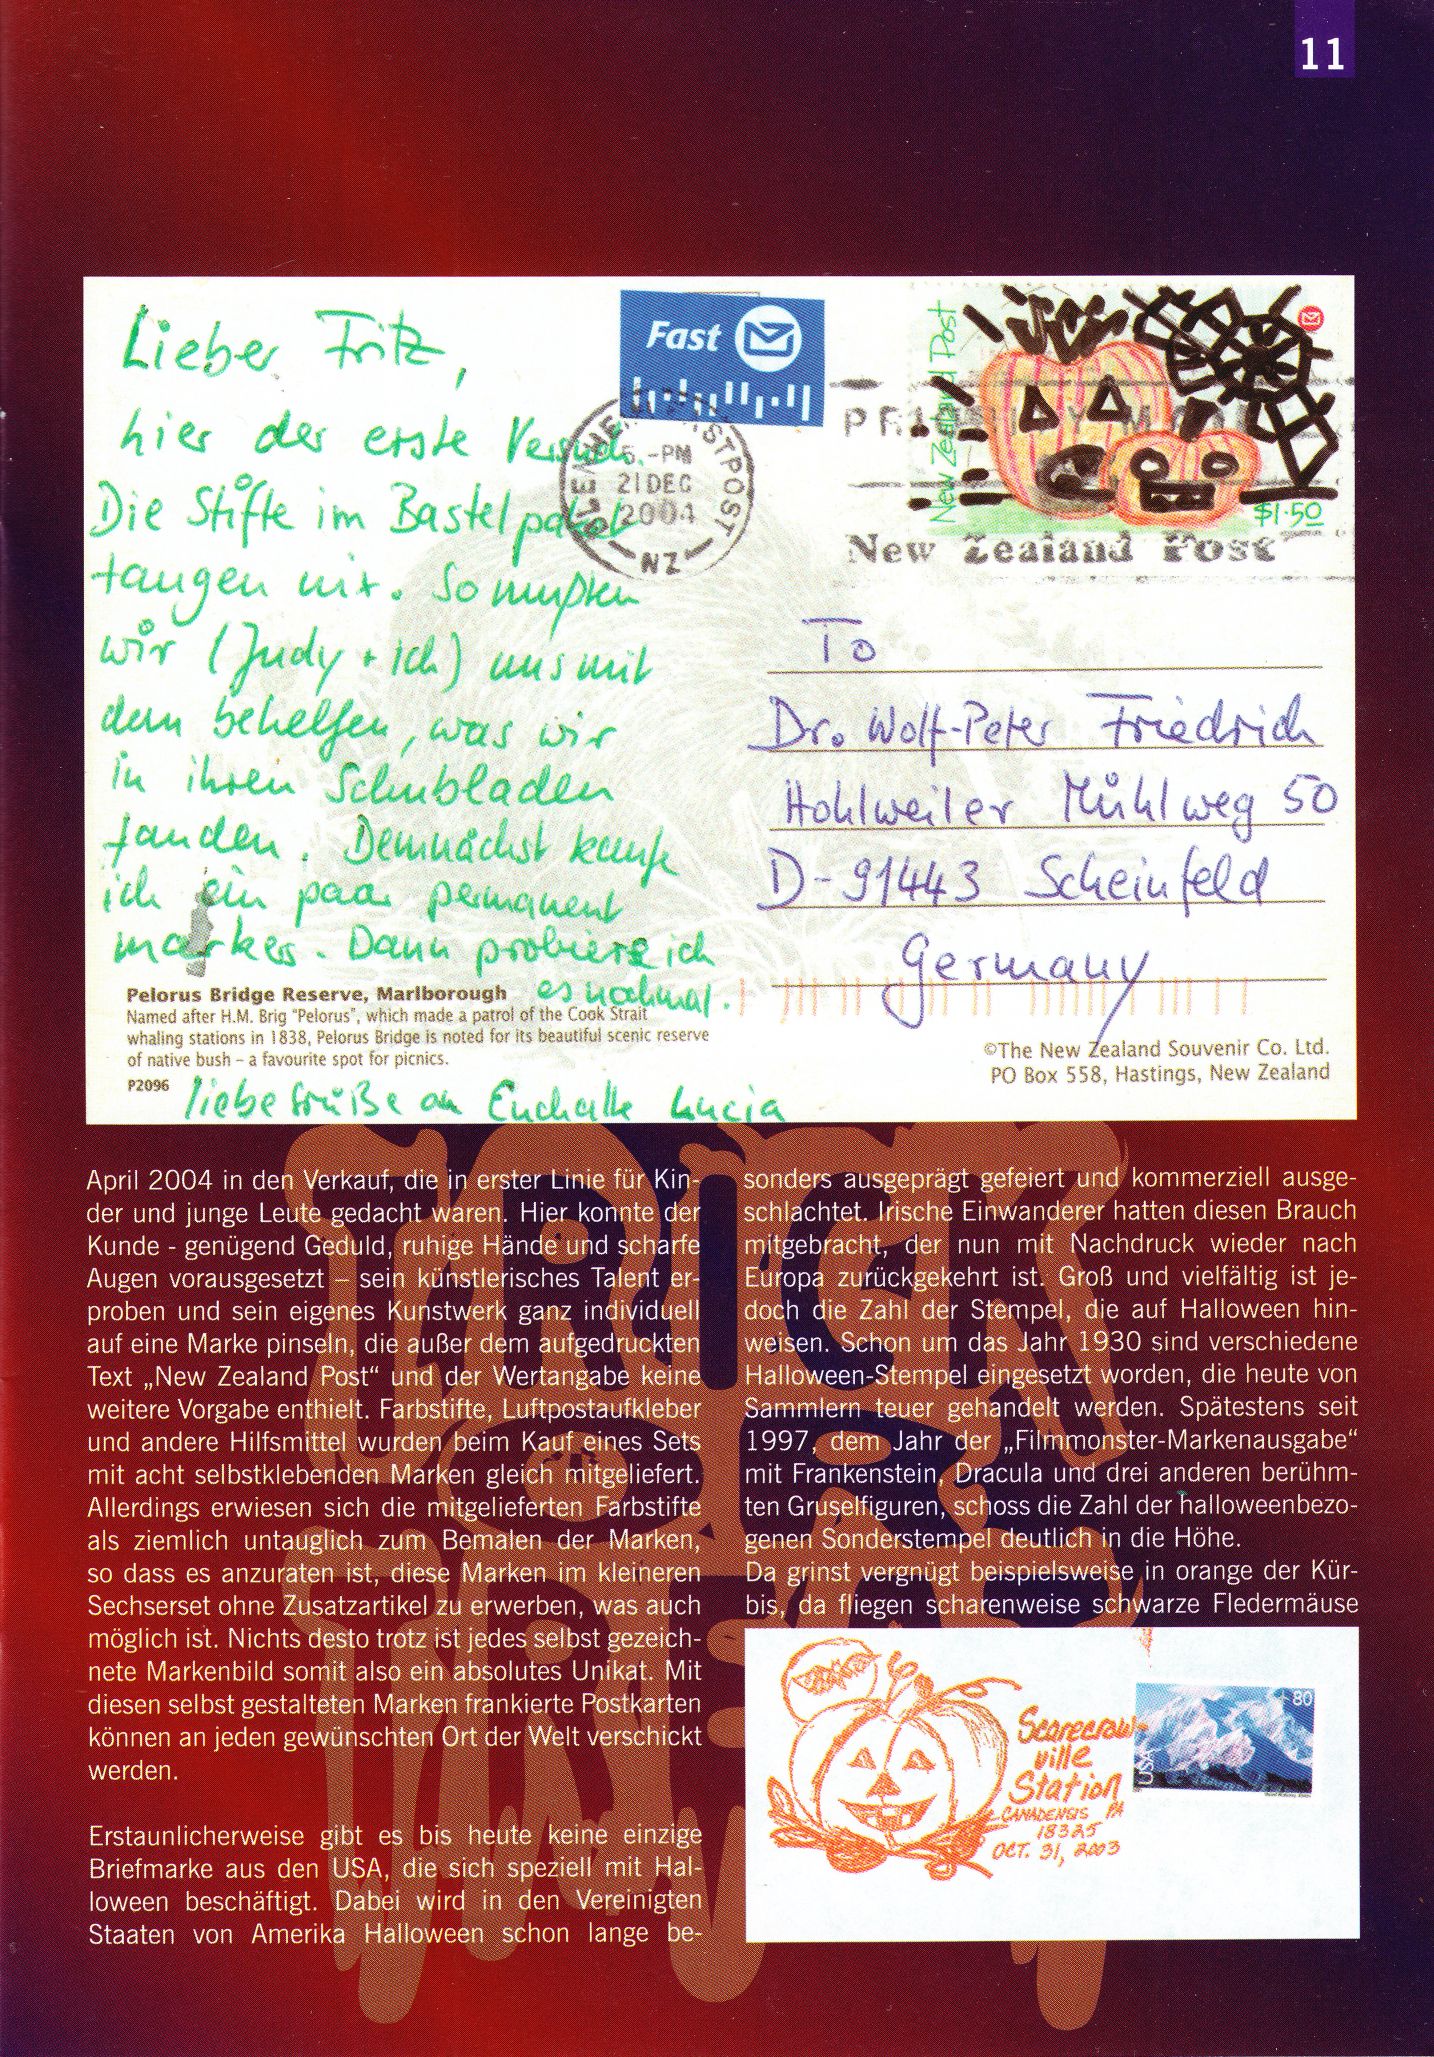 11
Lieber Fritz,
hier der erste Versuch.
Die Stifte im Bastelpaket
taugen nix. So mußten
wir (Judy + ich) uns mit
dem behelfen, was wir
in ihren Schubladen
fanden. Demnächst kaufe
ich ein paar permanent
markers. Dann probiere ich
es nochmal.
Pelorus Bridge Reserve, Marlborough
Named after H.M. Brig "Pelorus", which made a patrol of the Cook Strait
whaling stations in 1838, Pelorus Bridge is noted for its beautiful scenic reserve
of native bush – a favourite spot for picnics.
P2096
liebe Grüße an Euch alle Lucia
Fast
5.-PM
21 DEC
2004
NZ
New Zealand Post
$1.50
New Zealand Post
To
Dr. Wolf-Peter Friedrich
Hohlweiler Mühlweg 50
D-91443 Scheinfeld
Germany
©The New Zealand Souvenir Co. Ltd.
PO Box 558, Hastings, New Zealand
TRICK
OR
TREAT
April 2004 in den Verkauf, die in erster Linie für Kin-
der und junge Leute gedacht waren. Hier konnte der
Kunde - genügend Geduld, ruhige Hände und scharfe
Augen vorausgesetzt – sein künstlerisches Talent er-
proben und sein eigenes Kunstwerk ganz individuell
auf eine Marke pinseln, die außer dem aufgedruckten
Text „New Zealand Post“ und der Wertangabe keine
weitere Vorgabe enthielt. Farbstifte, Luftpostaufkleber
und andere Hilfsmittel wurden beim Kauf eines Sets
mit acht selbstklebenden Marken gleich mitgeliefert.
Allerdings erwiesen sich die mitgelieferten Farbstifte
als ziemlich untauglich zum Bemalen der Marken,
so dass es anzuraten ist, diese Marken im kleineren
Sechserset ohne Zusatzartikel zu erwerben, was auch
möglich ist. Nichts desto trotz ist jedes selbst gezeich-
nete Markenbild somit also ein absolutes Unikat. Mit
diesen selbst gestalteten Marken frankierte Postkarten
können an jeden gewünschten Ort der Welt verschickt
werden.
Erstaunlicherweise gibt es bis heute keine einzige
Briefmarke aus den USA, die sich speziell mit Hal-
loween beschäftigt. Dabei wird in den Vereinigten
Staaten von Amerika Halloween schon lange be-
sonders ausgeprägt gefeiert und kommerziell ausge-
schlachtet. Irische Einwanderer hatten diesen Brauch
mitgebracht, der nun mit Nachdruck wieder nach
Europa zurückgekehrt ist. Groß und vielfältig ist je-
doch die Zahl der Stempel, die auf Halloween hin-
weisen. Schon um das Jahr 1930 sind verschiedene
Halloween-Stempel eingesetzt worden, die heute von
Sammlern teuer gehandelt werden. Spätestens seit
1997, dem Jahr der „Filmmonster-Markenausgabe“
mit Frankenstein, Dracula und drei anderen berühm-
ten Gruselfiguren, schoss die Zahl der halloweenbezo-
genen Sonderstempel deutlich in die Höhe.
Da grinst vergnügt beispielsweise in orange der Kür-
bis, da fliegen scharenweise schwarze Fledermäuse
Scarecrow-
ville
Station
CANADENSIS PA
18325
OCT. 31, 2003
80
USA